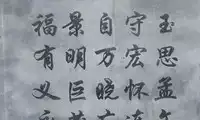 玉思孟
守宏怀
自万晓
景明巨
福有义